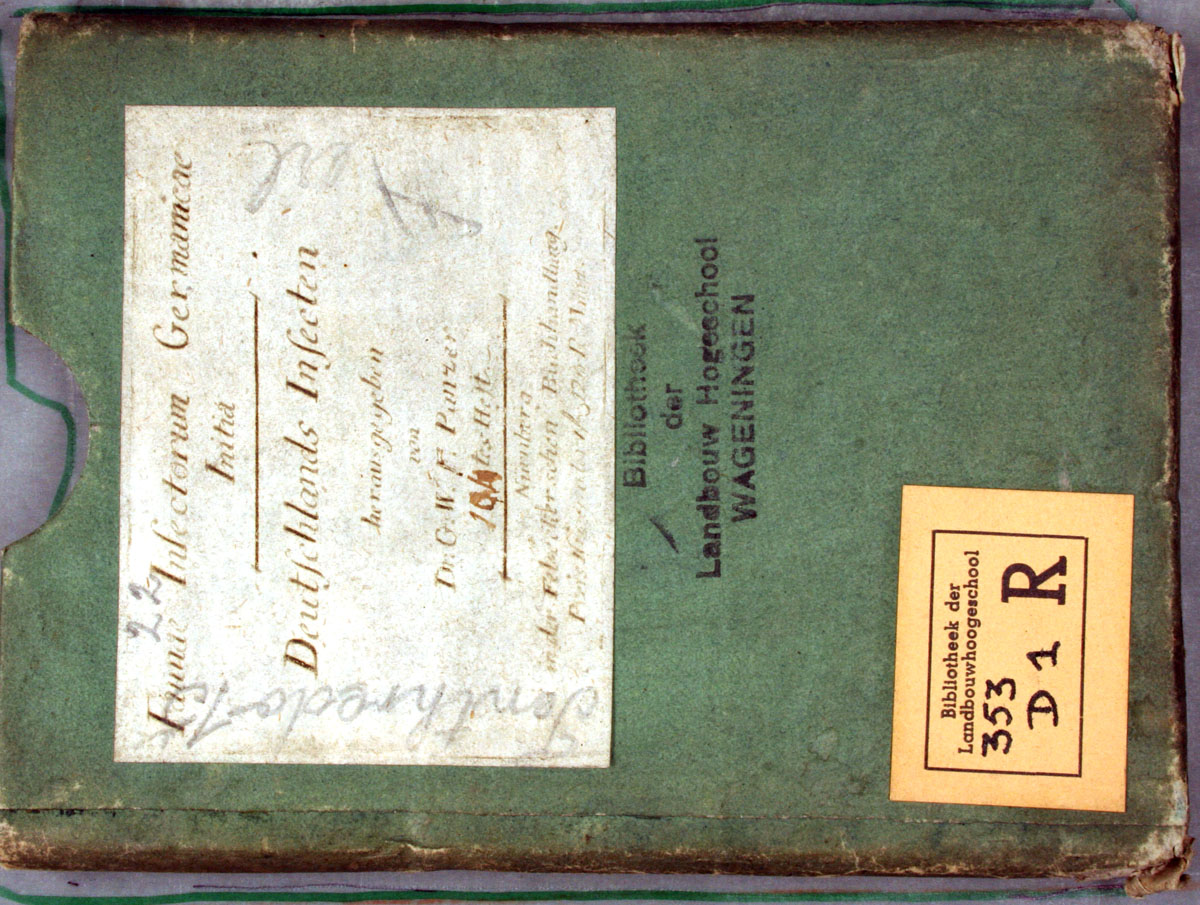 22
Faunae Insectorum Germanicae
Initia
Deutschlands Insecten
herausgegeben
von
Dr. G. W. F. Panzer
104tes Heft
Nürnberg
in der Felseckerschen Buchhandlung
Tenthredo
Bibliotheek
der
Landbouw Hogeschool
WAGENINGEN
Bibliotheek der
Landbouwhoogeschool
353
D 1 R